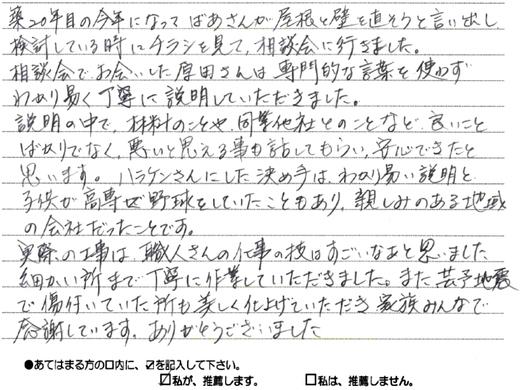 築20年目の今年になって ばあさんが屋根と壁を直そうと言い出し
検討している時にチラシを見て、相談会に行きました。
相談会でお会いした原田さんは専門的な言葉を使わず
わかり易く丁寧に説明していただきました。
説明の中で、材料のことや、同業他社とのことなど、良いこと
ばかりでなく、悪いと思える事も話してもらい、安心できたと
思います。ハラケンさんにした決め手は、わかり易い説明と
子供が高専で野球をしていたこともあり、親しみのある地域
の会社だったことです。
実際の工事は、職人さんの仕事の技はすごいなあと思いました
細かい所まで丁寧に作業していただきました。また芸予地震
で傷付いていた所も美しく仕上げていただき家族みんなで
感謝しています。ありがとうございました
●あてはまる方の口内に、☑を記入して下さい。
☑私が、推薦します。 □私は、推薦しません。